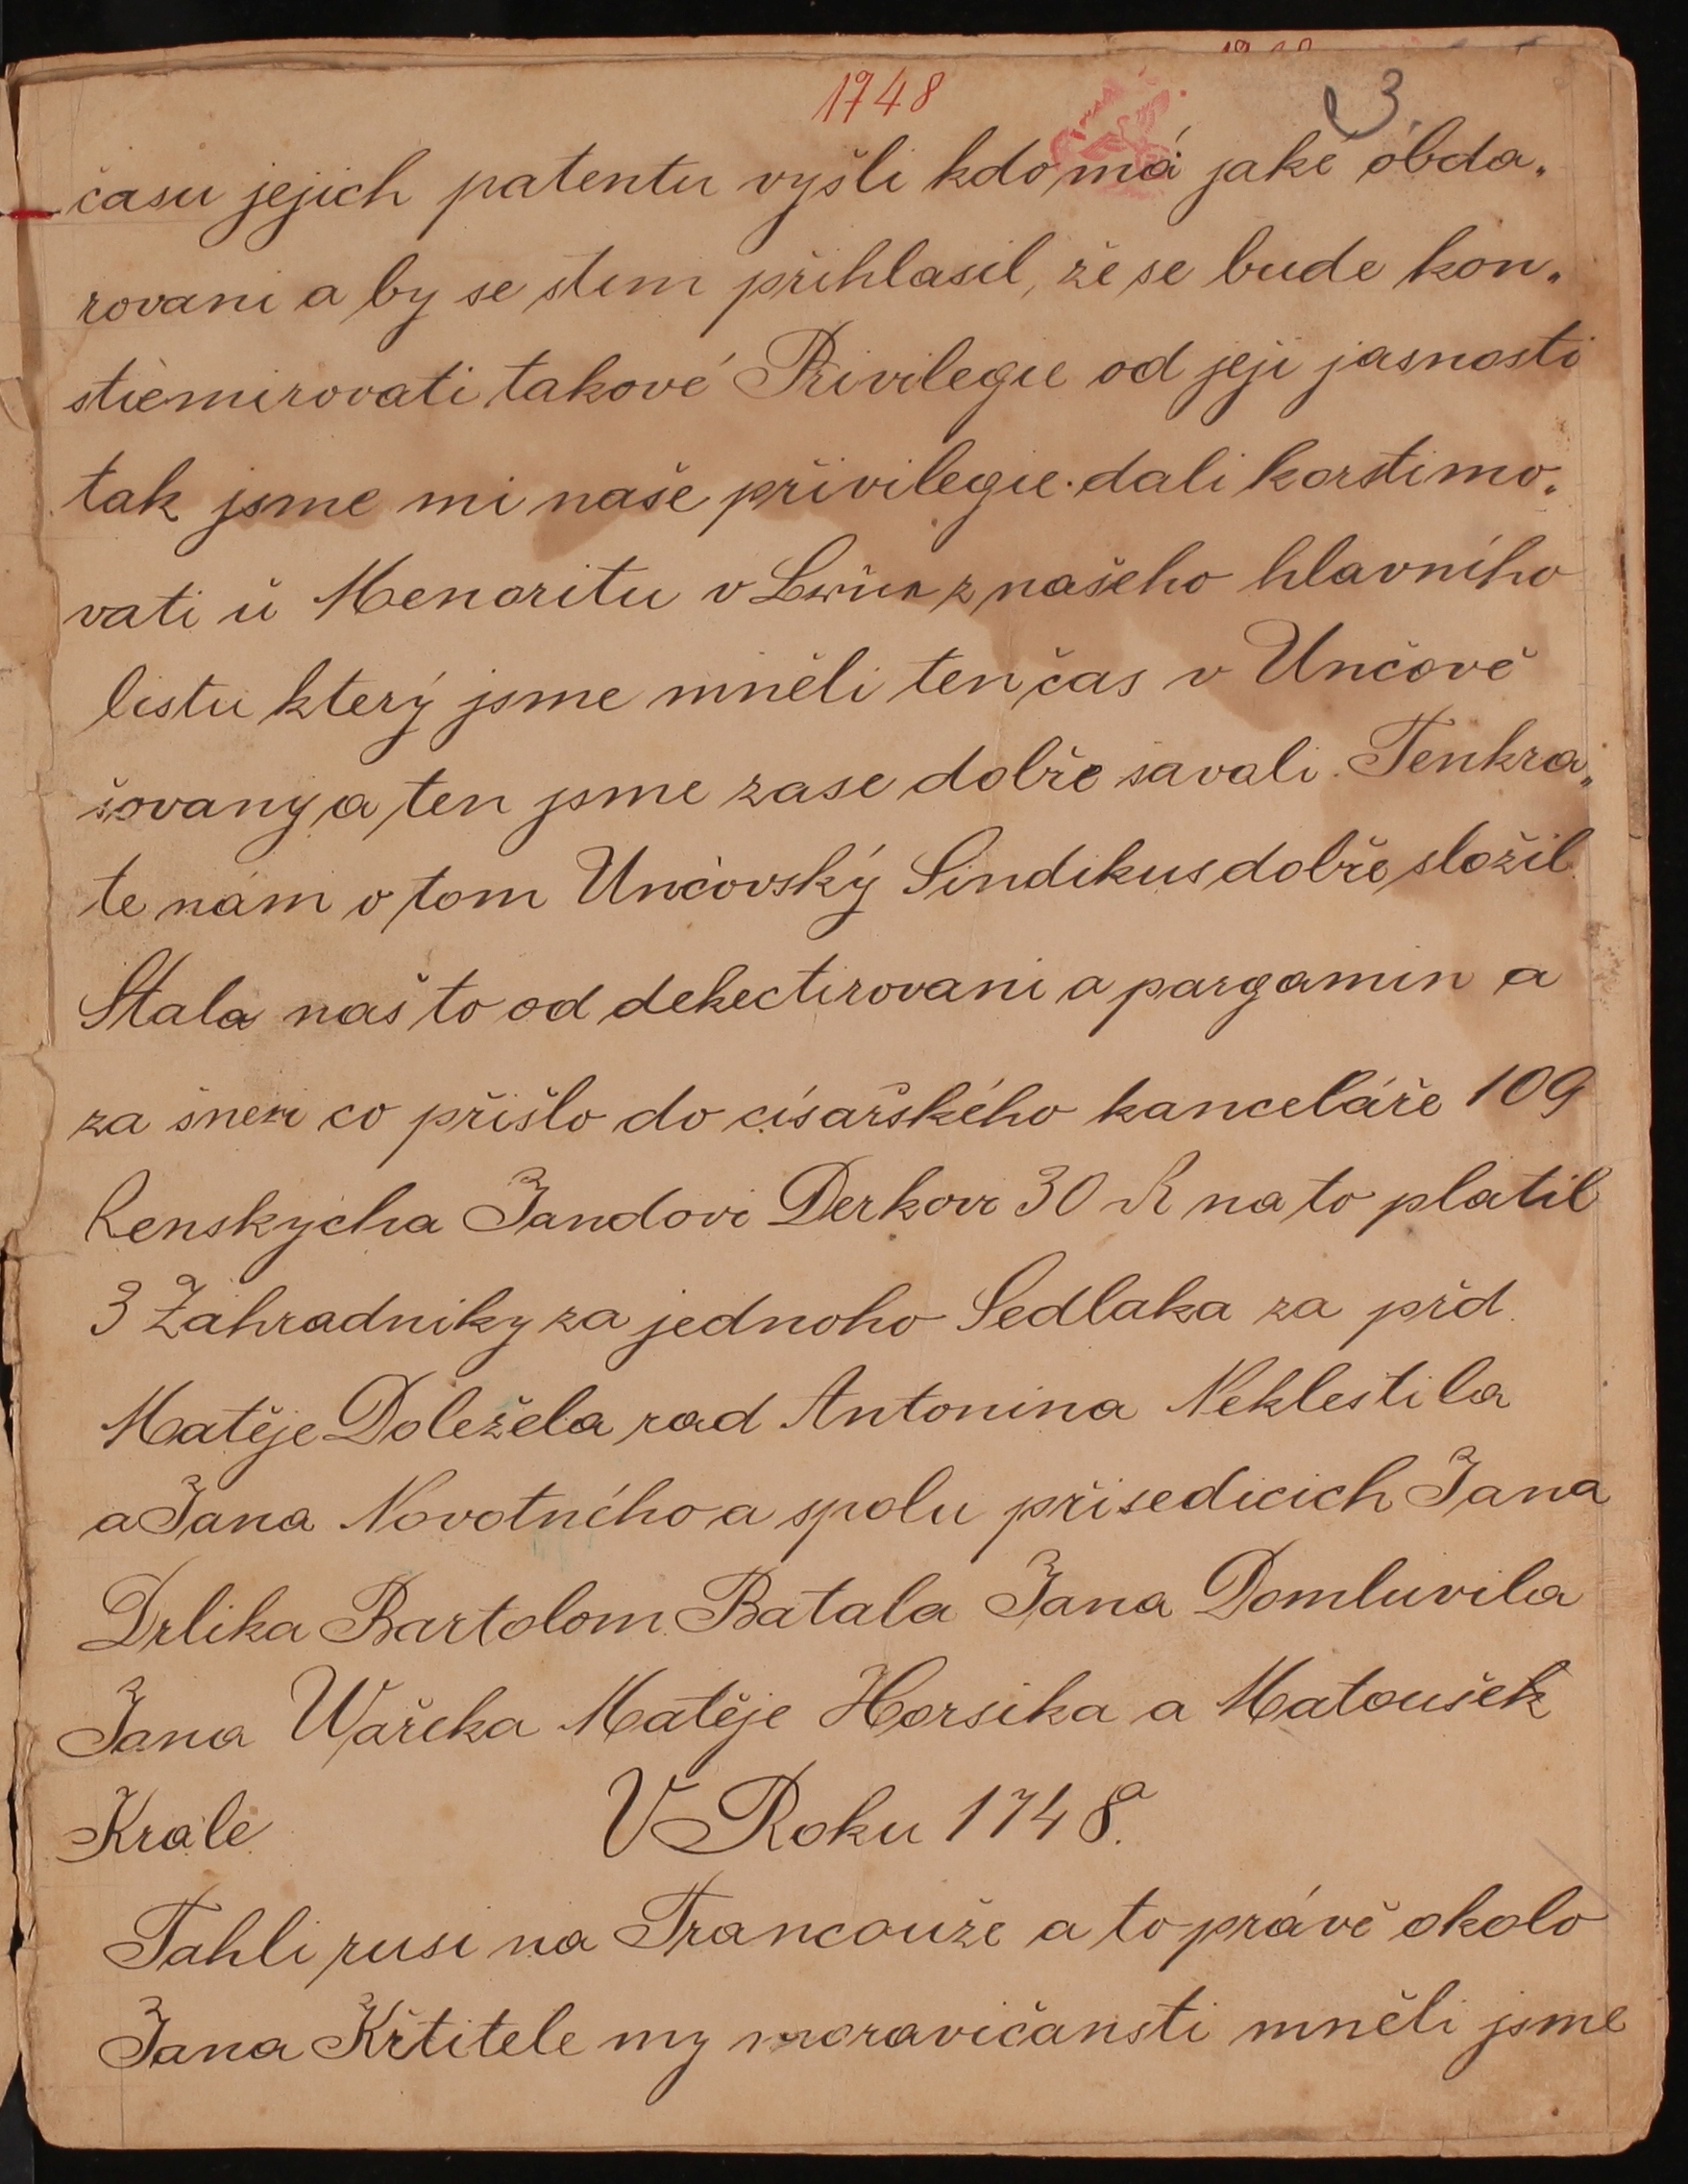 1748
3.
času jejich patentu vyšli kdo má jaké obda„
rovani a by se stim přihlasil, že se bude kon„
stiemirovati takové Privilegie od jeji jasnosti
tak jsme mi naše přivilegie dali korstimo„
vati ú Menoritu v z našeho hlavního
listu který jsme mněli ten čas v Unčově
šovany a ten jsme zase dobře savali. Tenkra„
te nám o tom Unčovský Sindikus dobře složil
Stala nas to od dekectirovani a pargamin a
za co přišlo do císařského kanceláře 109
Renskycha Jandovi Derkovi 30 R na to platil
3 Zahradniky za jednoho Sedlaka za přd.
Matěje Doležela rad Antonina Neklestila
a Jana Novotného a spolu přisedicich Jana
Drlika Bartolom. Batala Jana Domluvila
Jana Wařeka Matěje Horsika a Matoušek
Krale V Roku 1748.
Tahli rusi na Francouže a to právě okolo
Jana Křtitele my moravičansti mněli jsme